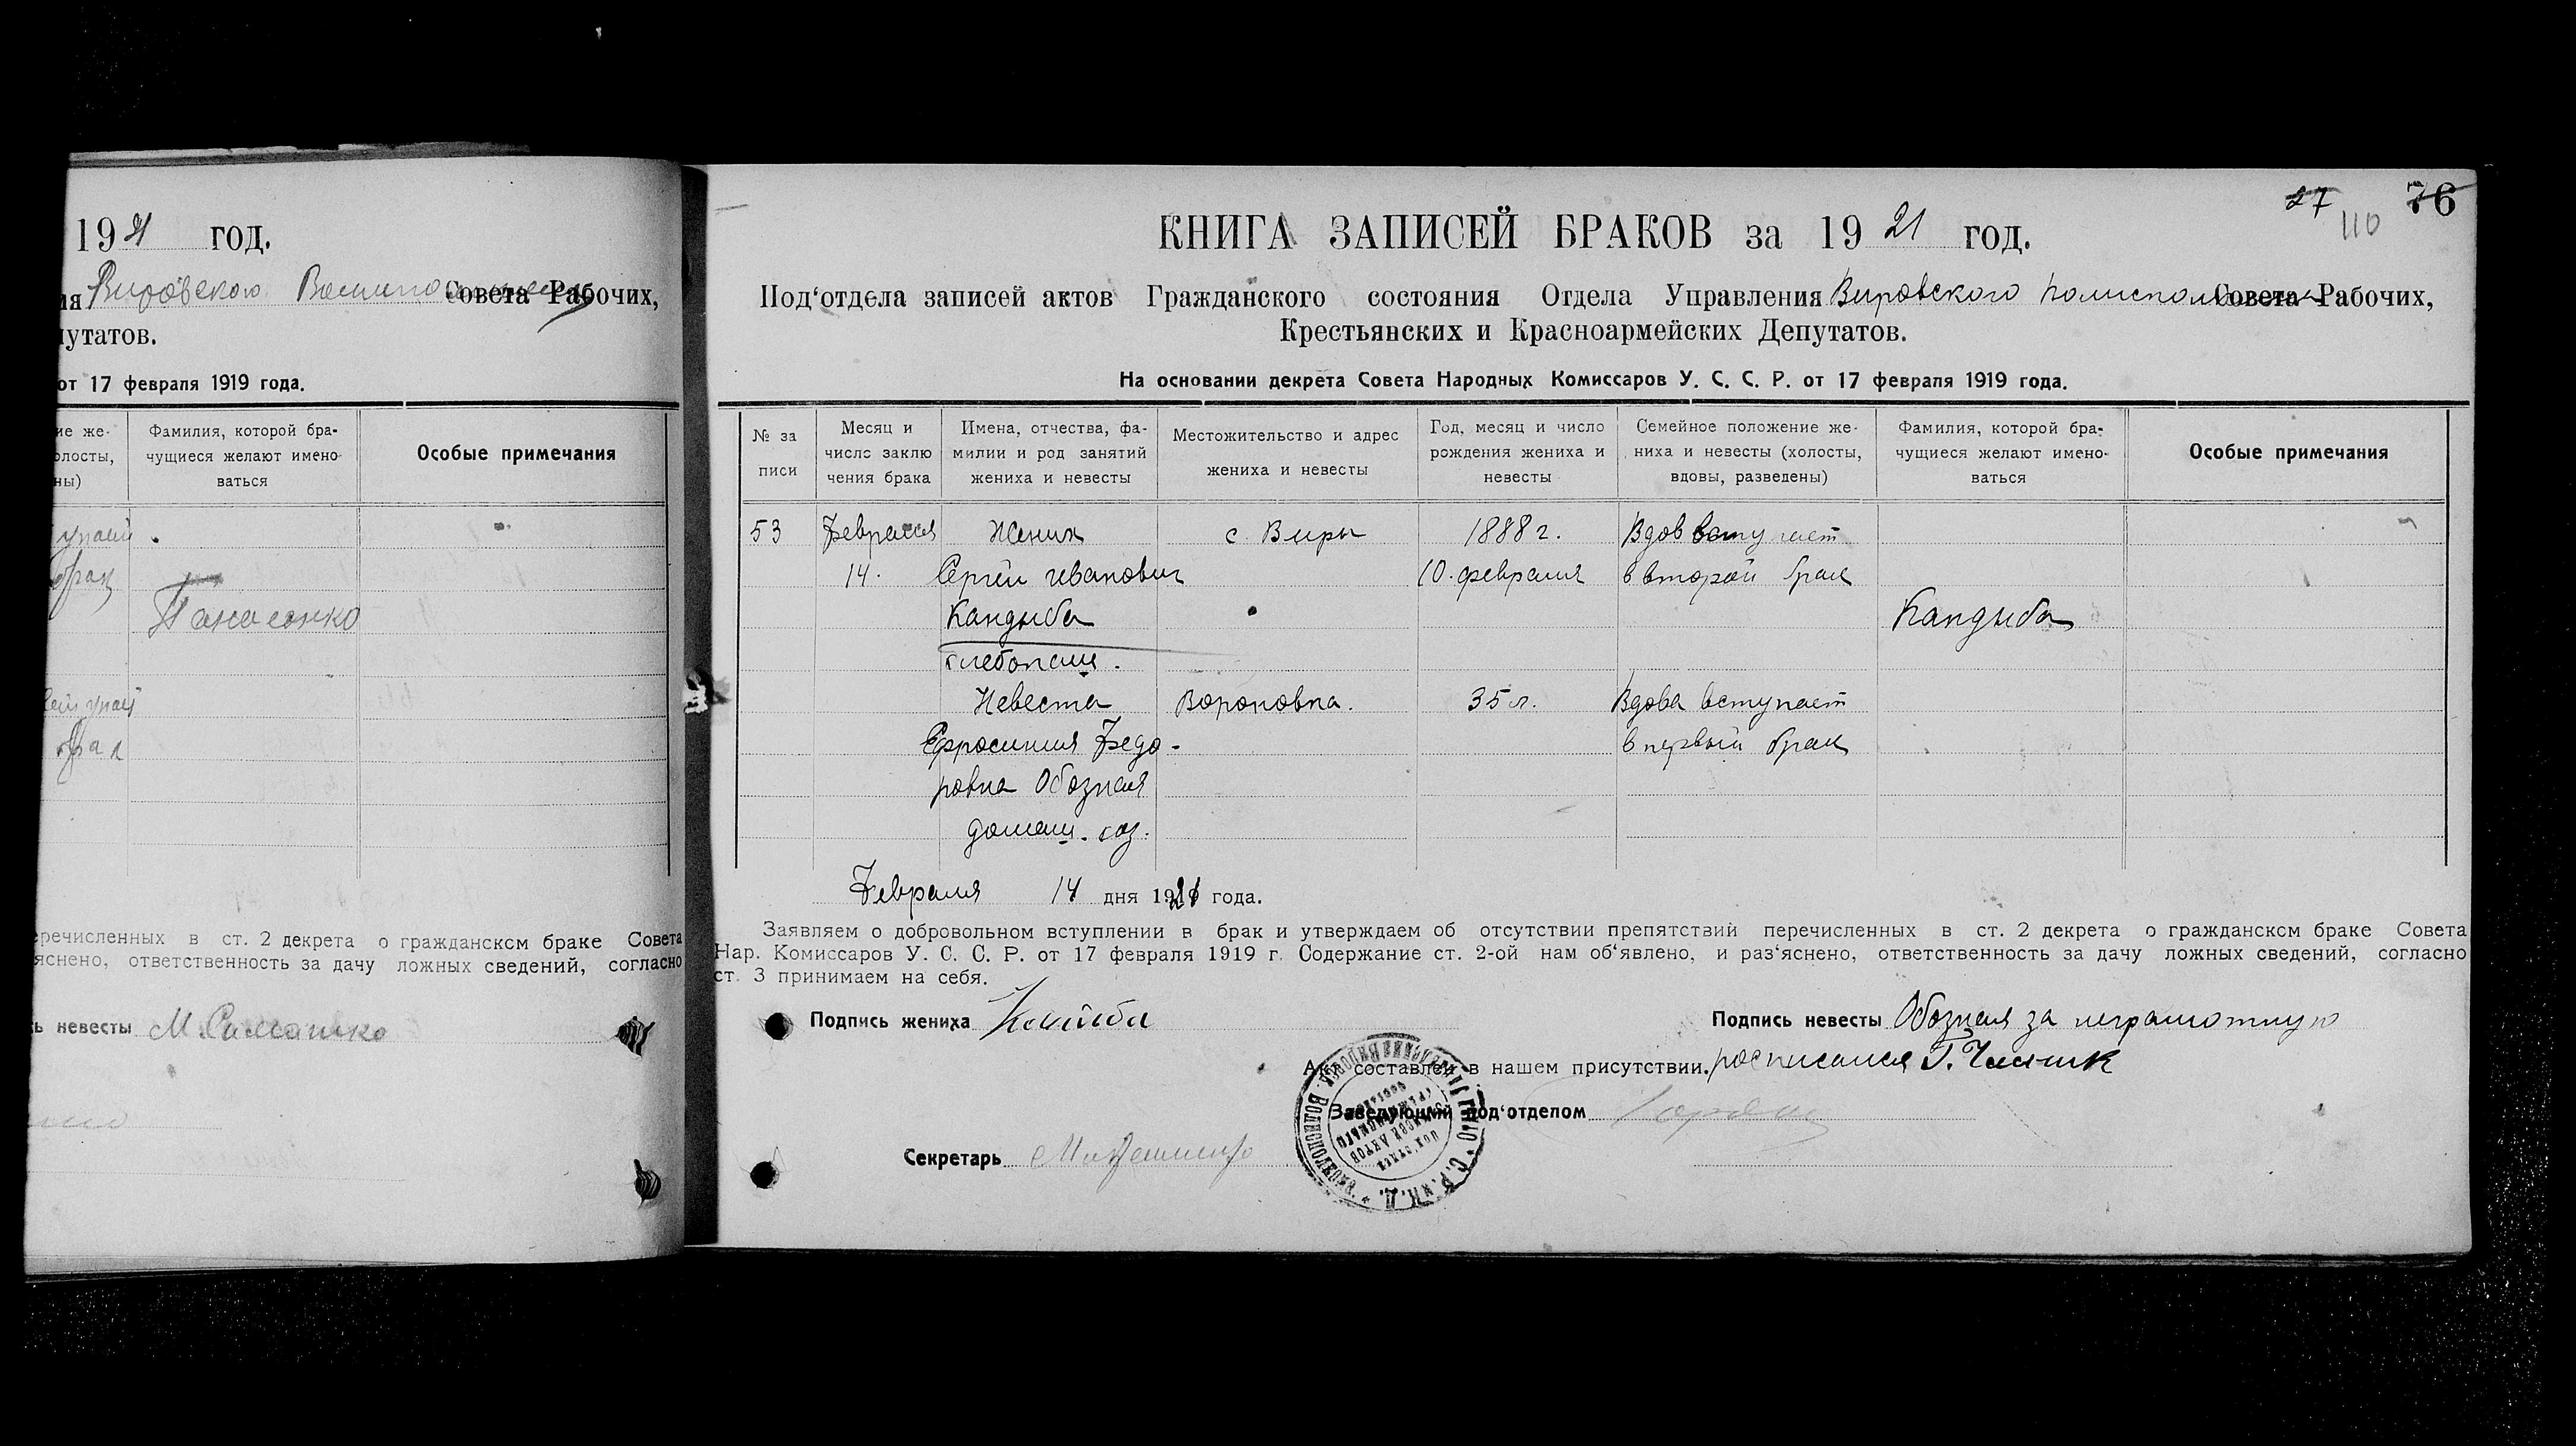 1921 год.
ия Вировского Совета Рабочих,
путатов.
от 17 февраля 1919 года.
ие же-
олосты,
ны)
Фамилия, которой бра-
чущиеся желают имено-
ваться
Особые примечания
брак
Панасенко
еречисленных в ст. 2 декрета о гражданском браке Совета
яснено, ответственность за дачу ложных сведений, согласно
ь невесты
27 110 76
КНИГА ЗАПИСЕЙ БРАКОВ за 1921 год.
Под‘отдела записей актов Гражданского состояния Отдела Управления Вировского Совета Рабочих,
Крестьянских и Красноармейских Депутатов.
На основании декрета Совета Народных Комиссаров У. С. С. Р. от 17 февраля 1919 года.
№ за
писи
Месяц и
число заклю
чения брака
Имена, отчества, фа-
милии и род занятий
жениха и невесты
Местожительство и адрес
жениха и невесты
Год, месяц и число
рождения жениха и
невесты
Семейное положение же-
ниха и невесты (холосты,
вдовы, разведены)
Фамилия, которой бра-
чущиеся желают имено-
ваться
Особые примечания
53 Февраля Жених с. Виры 1888 г. Вдов вступает
14. Сергей Иванович 10. февраля в второй брак
Кандыба Кандыба
хлебопаш.
Невеста Вороновка. 35 л. Вдова вступает
Ефросиния Федо- в первый брак
ровна Обозная
домаш. хоз.
Февраля 14 дня 1921 года.
Заявляем о добровольном вступлении в брак и утверждаем об отсутствии препятствий перечисленных в ст. 2 декрета о гражданском браке Совета
Нар. Комиссаров У. С. С. Р. от 17 февраля 1919 г. Содержание ст. 2-ой нам об‘явлено, и раз‘яснено, ответственность за дачу ложных сведений, согласно
ст. 3 принимаем на себя.
Подпись жениха
Подпись невесты Обозная за неграмотную
Акт составлен в нашем присутствии. росписался Г.
Заведующий под‘отделом
Секретарь